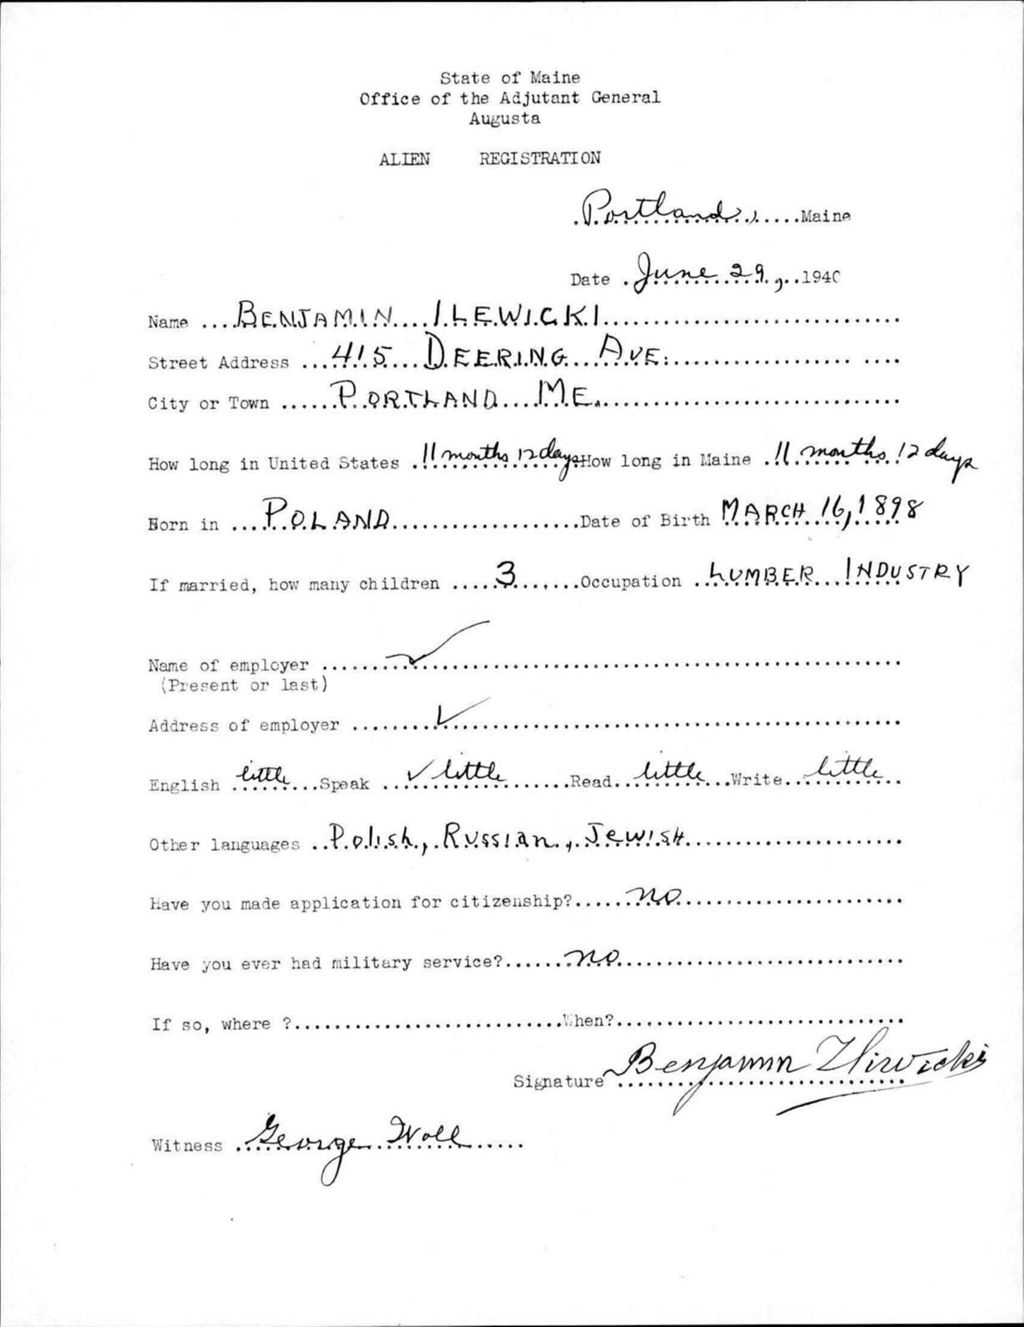 State of Maine
Office of the Adjutant General
Augusta
ALIEN REGISTRATION
Portland, Maine
Date June 29, 1940
Name BENJAMIN ILEWICKI
Street Address 415 DEERING AVE.
City or Town PORTLAND ME.
How long in United States 11 months 12 days How long in Maine 11 months 12 days
Born in POLAND Date of Birth MARCH 16, 1898
If married, how many children 3 Occupation LUMBER INDUSTRY
Name of employer ✓
(Present or last)
Address of employer ✓
English little Speak ✓ little Read little Write little
Other languages Polish, Russian, Jewish
Have you made application for citizenship? no
Have you ever had military service? no
If so, where ? When?
Signature Benjamin
Witness George Woll